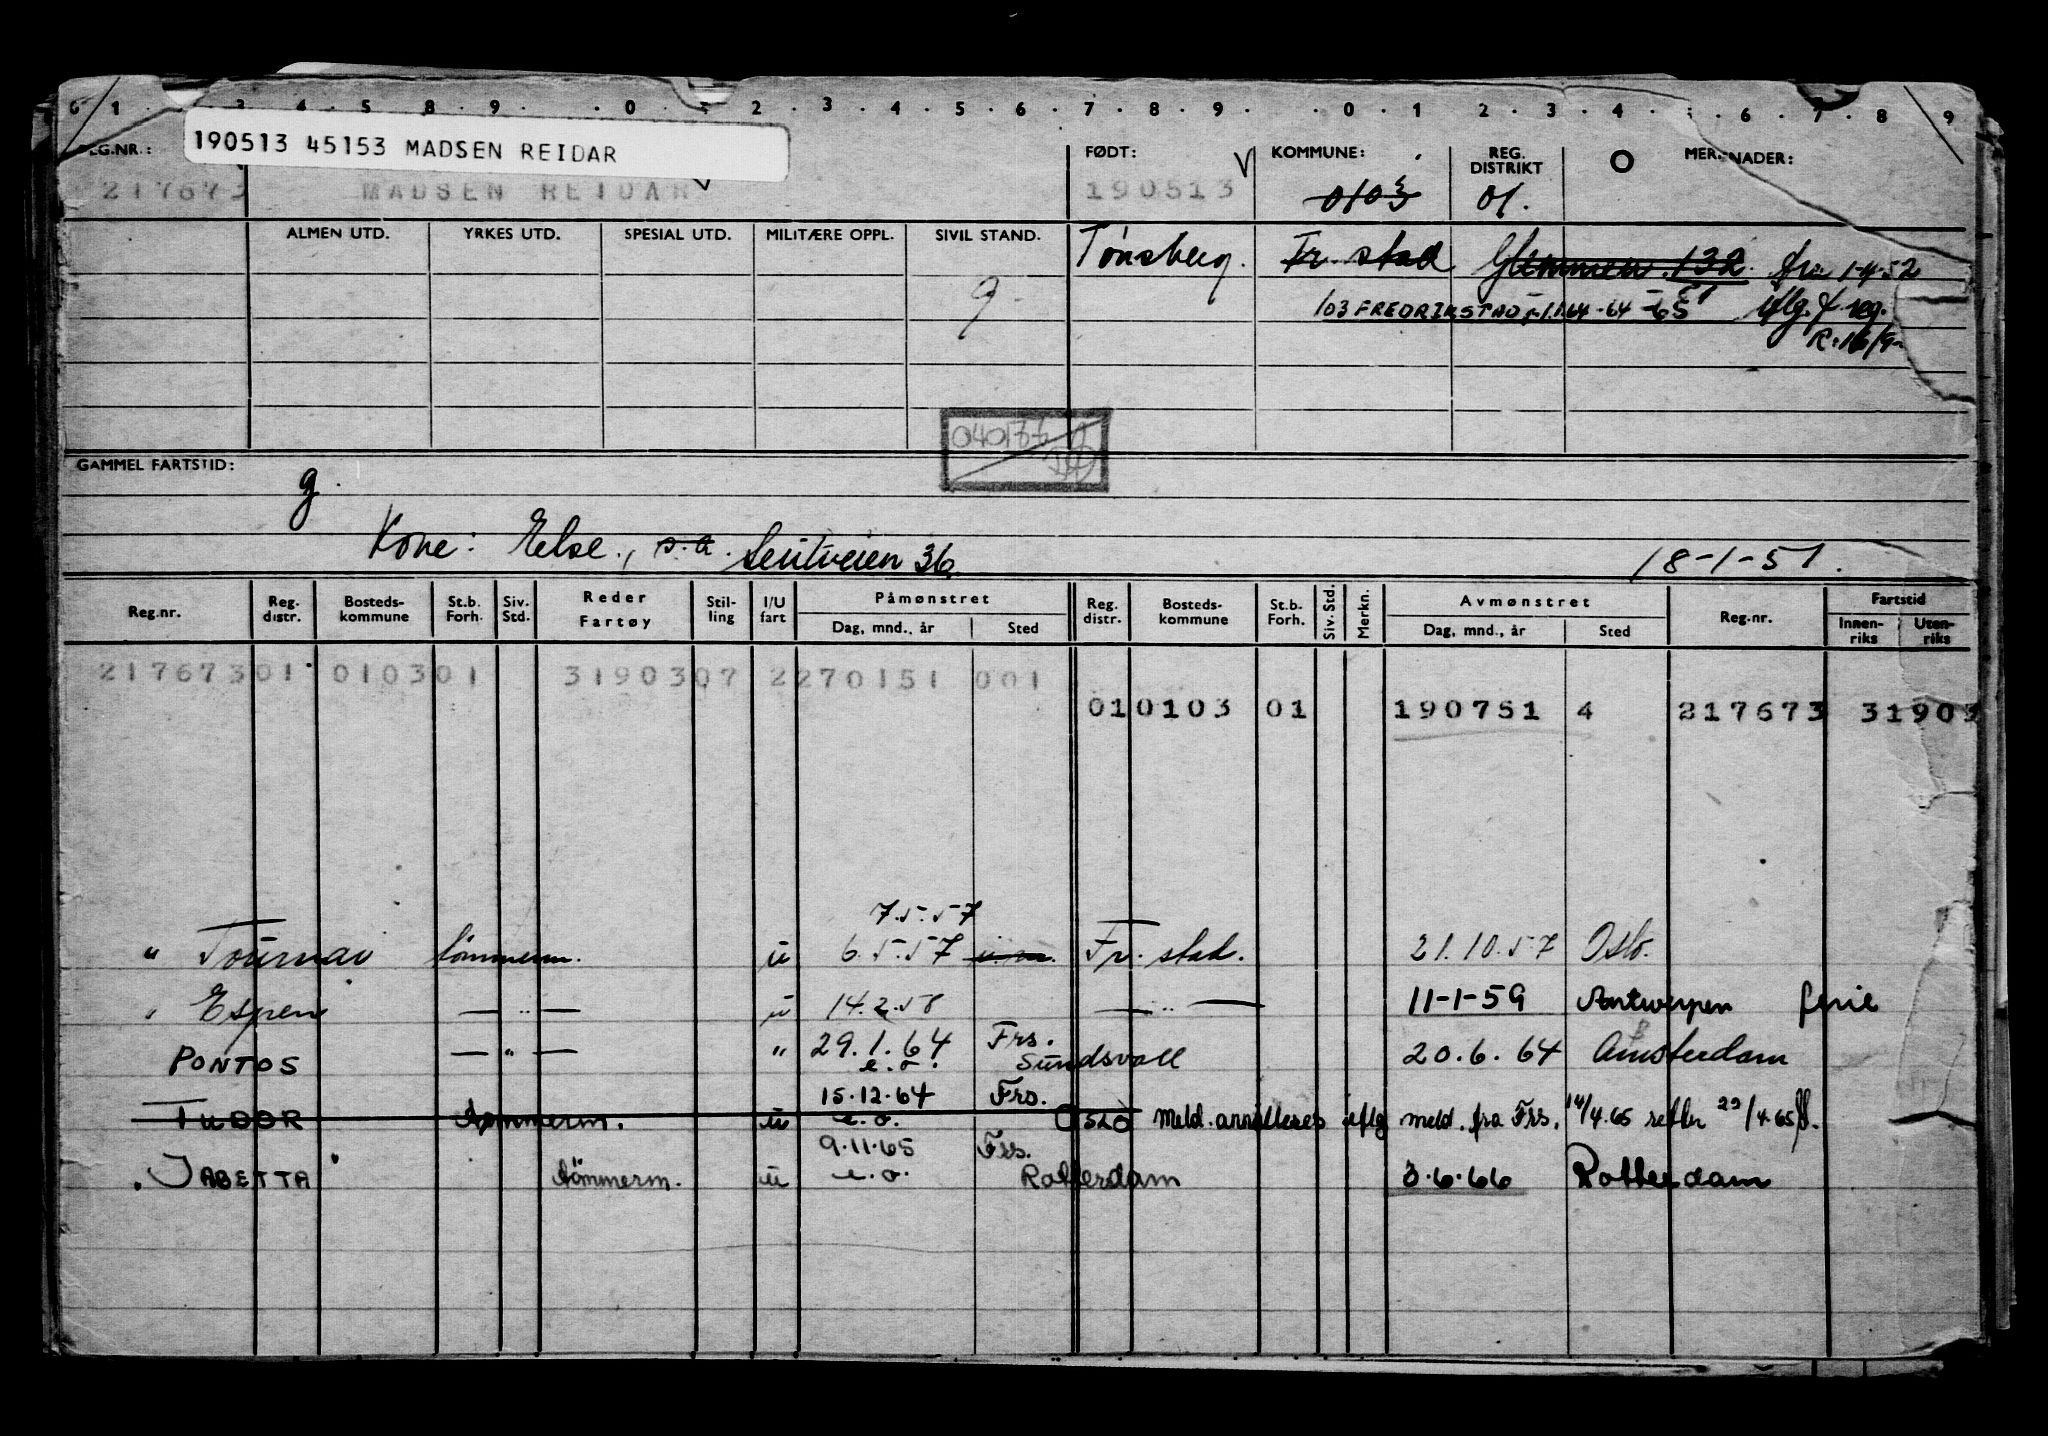 G 1 . . 3 . 4 . 5 . 8 . 9 . . 0 . 1 . 2 . 3 . 4 . 5 . 6 . 7 . 8 . 9 . . 0 . 1 . 2 . 3 . 4 . . 6 . 7 . 8 . 9
190513 45153 MADSEN REIDAR
REG.NR.: FØDT: KOMMUNE: REG. DISTRIKT MERKNADER:
217673 MADSEN REIDAR 190513 0103 01.
ALMEN UTD. YRKES UTD. SPESIAL UTD. MILITÆRE OPPL. SIVIL STAND.
Tønsberg. Fr. stad Glemmen 132. fra 1-4-52
g. 103 FREDRIKSTAD 1.1.64 -64 -65 iflg. f. reg.
R: 16/9-
040177
GAMMEL FARTSTID:
g.
Kone: Else., s.a. Leitveien 36. 18-1-51.
Reg.nr. Reg. distr. Bosteds-kommune St.b. Forh. Siv. Std. Reder Fartøy Stil-ling I/U fart Påmønstret Dag, mnd., år Sted Reg. distr. Bosteds-kommune St.b. Forh. Siv. Std. Merkn. Avmønstret Dag, mnd., år Sted Reg.nr. Fartstid Innen-riks Uten-riks
217673 01 0103 01 3190307 2 270151 001
01 0103 01 190751 4 217673 3190
7.5.57
" Tournai tømmerm. u 6.5.57 u.m. Fr. stad. 21.10.57 Oslo.
" Espen — " — u 14.2.58 — " — 11-1-59 Antwerpen ferie
PONTOS — " — " 29.1.64 Frs.
e.o. Sundsvall 20.6.64 Amsterdam
15.12.64 Frs.
TUDOR tømmerm. u e.o. OSLO Meld. annulleres iflg meld. fra Frs. 14/4.65 retur 23/4.65
9.11.65 Frs.
" JABETTA tømmerm. u e.o. Rotterdam 3.6.66 Rotterdam